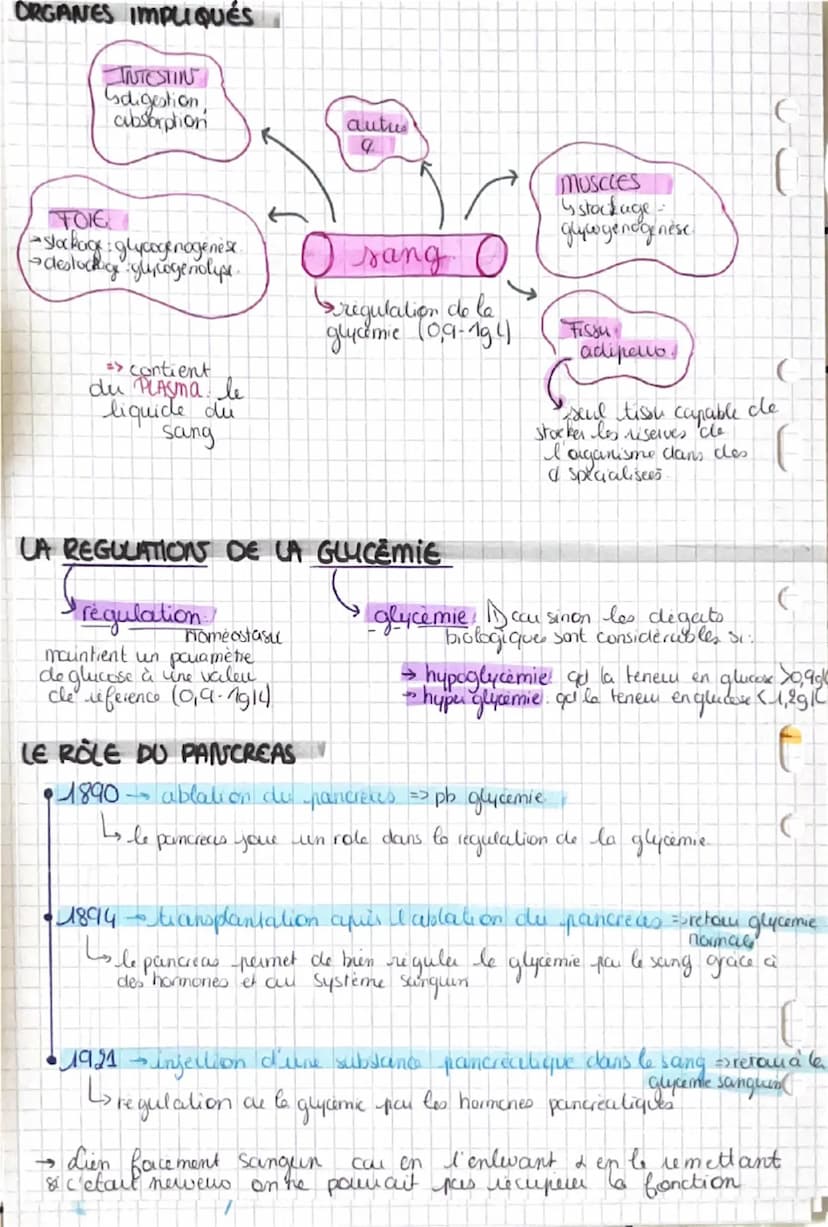 ORGANES IMPLIQUÉS
INTESTIN
↳digestion,
absorption
autres
FOIE
→stockage : glycogénogénèse
→déstockage : glycogénolyse
sang
MUSCLES
↳ stockage :
glycogénogénèse
↳régulation de la
glycémie (0,9-1g/L)
Tissu
adipeux
=> contient
du PLASMA: le
liquide du
sang
seul tissu capable de
stocker les réserves de
l'organisme dans des
spécialisées
LA REGULATIONS DE LA GLUCÉMIE
régulation:
homéostasie
maintient un paramètre
de glucose à une valeur
de référence (0,9-1g/L)
glycémie: ⚠ car sinon les dégats
biologiques sont considérables si:
→ hypoglycémie: qd la teneur en glucose >0,9g/L
→ hyperglycémie: qd la teneur en glucose < 1,2g/L
LE RÔLE DU PANCREAS
1890 → ablation du pancréas => pb glycémie
↳ le pancréas joue un role dans la régulation de la glycémie
1894 → transplantation après l'ablation du pancréas => retour glycémie
normale
↳ le pancréas permet de bien réguler le glycémie par le sang grâce à
des hormones et au système sanguin
1921 → injection d'une substance pancréatique dans le sang => retour à la
glycémie sanguin
↳ régulation de la glycémie par les hormones pancréatiques
→ Lien forcement sanguin car en l'enlevant & en le remettant
si c'était nerveux on ne pourrait pas récupérer la fonction